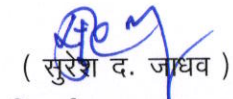 ( सुरेश द. जाधव )